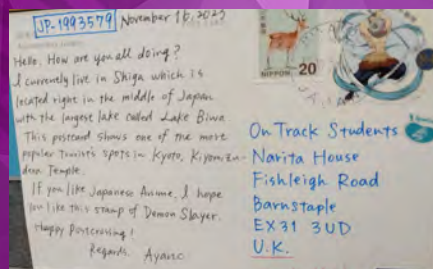 JP-1993579 November 16, 2022
Hello, How are you all doing?
I currently live in Shiga which is
located right in the middle of Japan
with the largest lake called Lake Biwa.
This postcard shows one of the most
popular Tourist's spots in Kyoto, Kiyomizu-
dera Temple.
If you like Japanese Anime, I hope
you like this stamp of Demon Slayer.
Happy Postcrossing!
Regards, Ayano
NIPPON 20
On Track Students
Narita House
Fishleigh Road
Barnstaple
EX31 3UD
U.K.